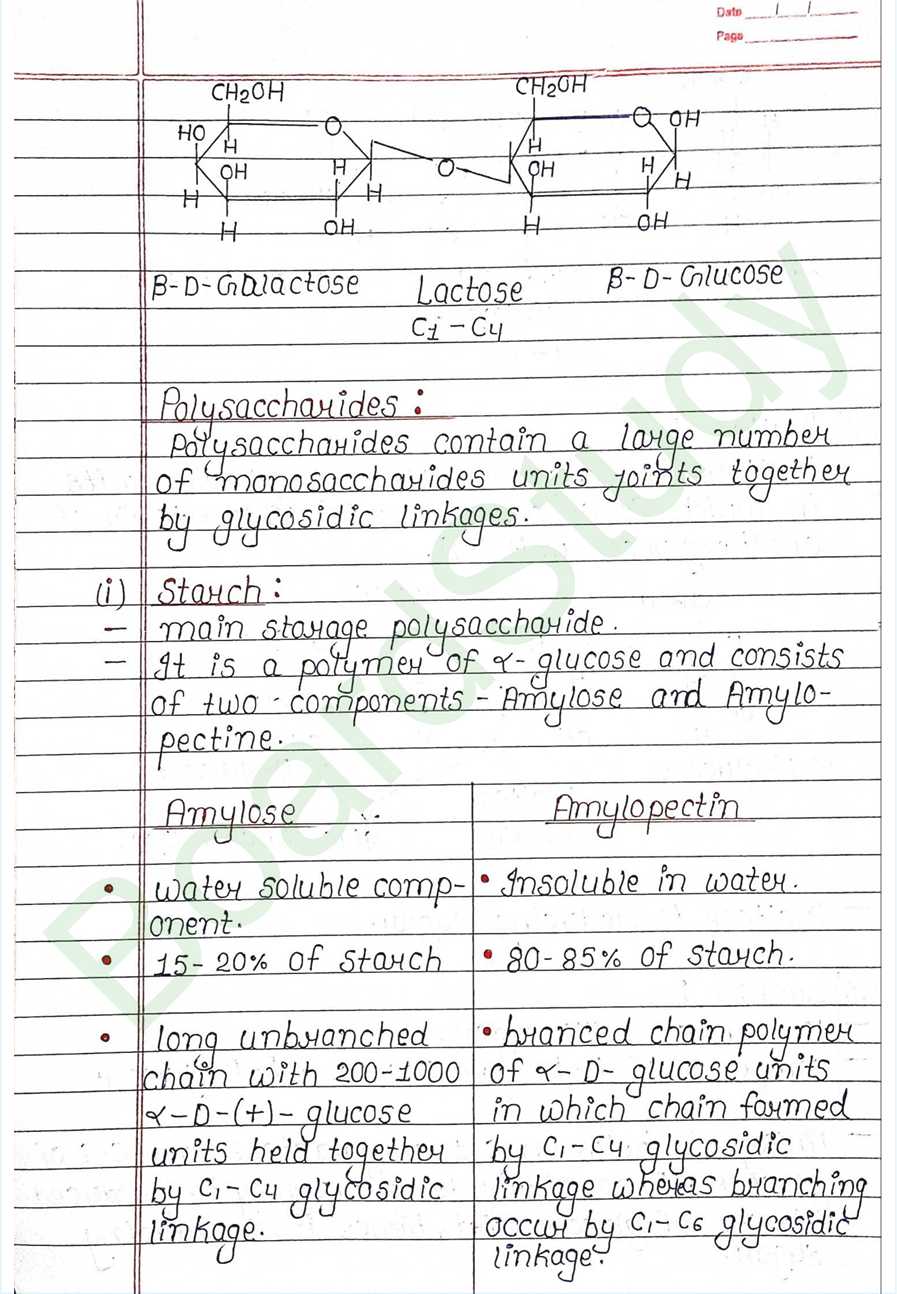 Date / /
Page
CH2OH CH2OH
HO O O OH
H H
OH H O OH H
H H H
H OH H OH
β-D-Galactose Lactose β-D-Glucose
C1-C4
Polysaccharides :
Polysaccharides contain a large number
of monosaccharides units joints together
by glycosidic linkages.
(i) Starch :
- main storage polysaccharide.
- It is a polymer of α-glucose and consists
of two components - Amylose and Amylo-
pectine.
Amylose
• water soluble comp-
onent.
• 15-20% of starch
• long unbranched
chain with 200-1000
α-D-(+)-glucose
units held together
by C1-C4 glycosidic
linkage.
Amylopectin
• Insoluble in water.
• 80-85% of starch.
• branced chain polymer
of α-D-glucose units
in which chain formed
by C1-C4 glycosidic
linkage whereas branching
occur by C1-C6 glycosidic
linkage.
BoardStudy